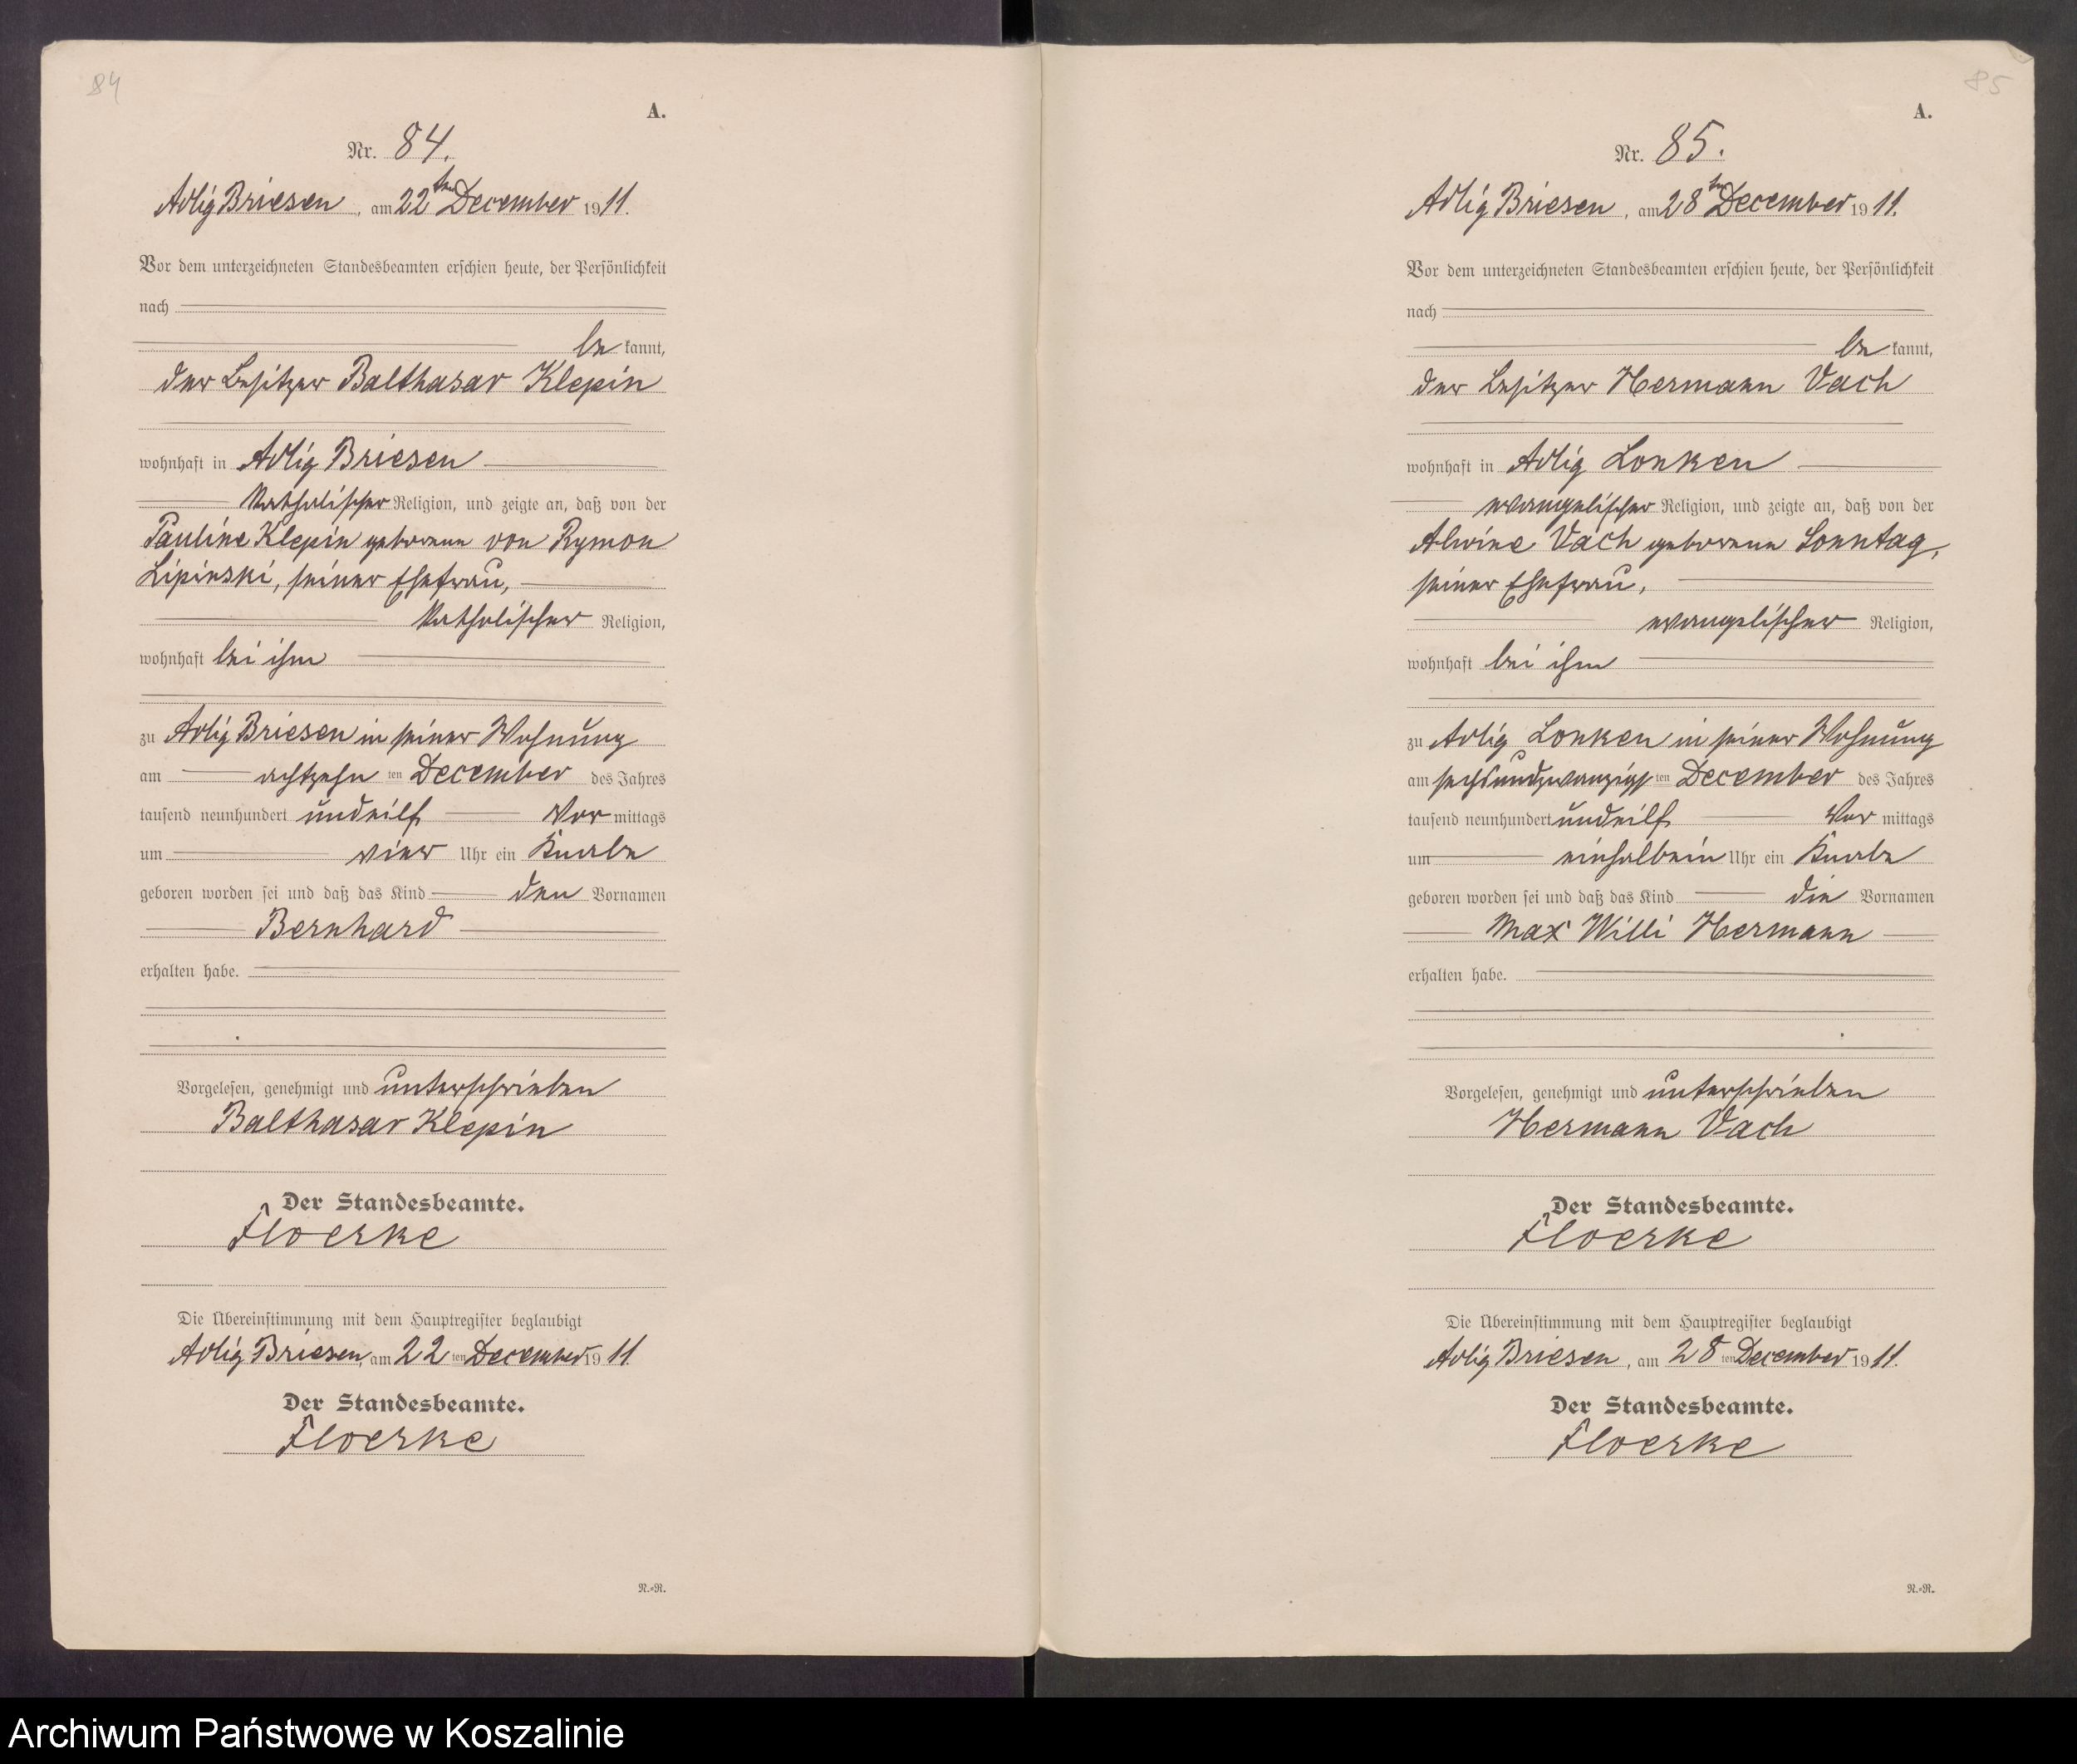 84
A.
Nr. 84.
Adlig Briesen, am 22ten December 1911.
Vor dem unterzeichneten Standesbeamten erschien heute, der Persönlichkeit
nach
be kannt,
der Besitzer Balthasar Klepin
wohnhaft in Adlig Briesen
katholischer Religion, und zeigte an, daß von der
Pauline Klepin geborene von Rymon
Lipinski, seiner Ehefrau,
katholischer Religion,
wohnhaft bei ihm
zu Adlig Briesen in seiner Wohnung
am achtzehn ten December des Jahres
tausend neunhundert undeilf Vor mittags
um vier Uhr ein Knabe
geboren worden sei und daß das Kind den Vornamen
Bernhard
erhalten habe.
Vorgelesen, genehmigt und unterschrieben
Balthasar Klepin
Der Standesbeamte.
Floerke
Die Übereinstimmung mit dem Hauptregister beglaubigt
Adlig Briesen, am 22 ten December 1911.
Der Standesbeamte.
Floerke
N.-R.
85
A.
Nr. 85.
Adlig Briesen, am 28ten December 1911.
Vor dem unterzeichneten Standesbeamten erschien heute, der Persönlichkeit
nach
be kannt,
der Besitzer Hermann Vach
wohnhaft in Adlig Lonken
evangelischer Religion, und zeigte an, daß von der
Alwine Vach geborene Sonntag,
seiner Ehefrau,
evangelischer Religion,
wohnhaft bei ihm
zu Adlig Lonken in seiner Wohnung
am sechsundzwanzigsten December des Jahres
tausend neunhundert undeilf Vor mittags
um einhalbein Uhr ein Knabe
geboren worden sei und daß das Kind die Vornamen
Max Willi Hermann
erhalten habe.
Vorgelesen, genehmigt und unterschrieben
Hermann Vach
Der Standesbeamte.
Floerke
Die Übereinstimmung mit dem Hauptregister beglaubigt
Adlig Briesen, am 28 ten December 1911.
Der Standesbeamte.
Floerke
N.-R.
Archiwum Państwowe w Koszalinie